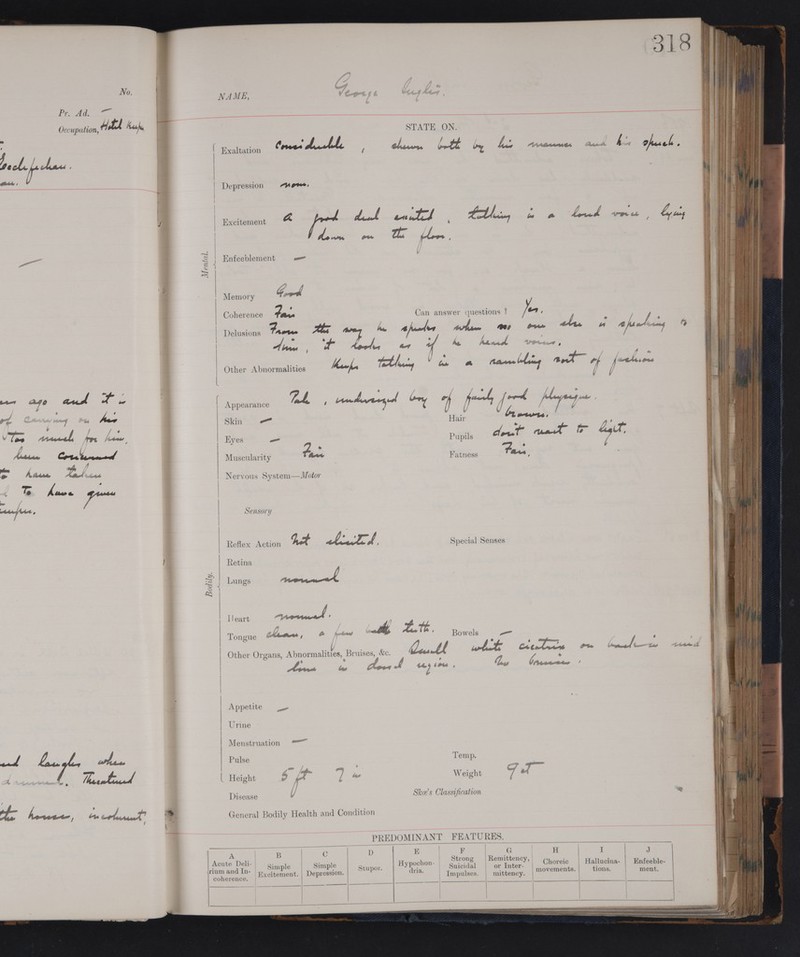 No.
Pr. Ad. —
Occupation, Hotel Keeper
Ecclefechan.
—
ago and it is
of carrying on his
too much for him.
been
to have taken
To have given
and laughs when
. Threatened
the houses, incoherent,
318
NAME, George Inglis.
STATE ON.
Mental.
Exaltation Considerable, shewn both by his manner and his speech.
Depression none.
Excitement A good deal excited, talking in a loud voice, lying
down on the floor.
Enfeeblement —
Memory Good
Coherence Fair Can answer questions? Yes.
Delusions From the way he speaks when no one else is speaking to
him, it looks as if he heard voices.
Other Abnormalities Keeps talking in a rambling sort of fashion
Bodily.
Appearance Pale, undersized boy of fairly good physique.
Skin — Hair brown.
Eyes — Pupils don't react to light.
Muscularity Fair Fatness Fair.
Nervous System—Motor
Sensory
Reflex Action Not elicited. Special Senses
Retina
Lungs normal
Heart normal.
Tongue clean, a few teeth. Bowels —
Other Organs, Abnormalities, Bruises, &c. Small white cicatrix on back in mid
line in dorsal region. No bruises.
Appetite —
Urine
Menstruation —
Pulse Temp.
Height 5 ft 7 in Weight 9 st
Disease Skae's Classification
General Bodily Health and Condition
PREDOMINANT FEATURES.
A B C D E F G H I J
Acute Delirium and Incoherence. Simple Excitement. Simple Depression. Stupor. Hypochondria. Strong Suicidal Impulses. Remittency, or Intermittency. Choreic movements. Hallucinations. Enfeeblement.